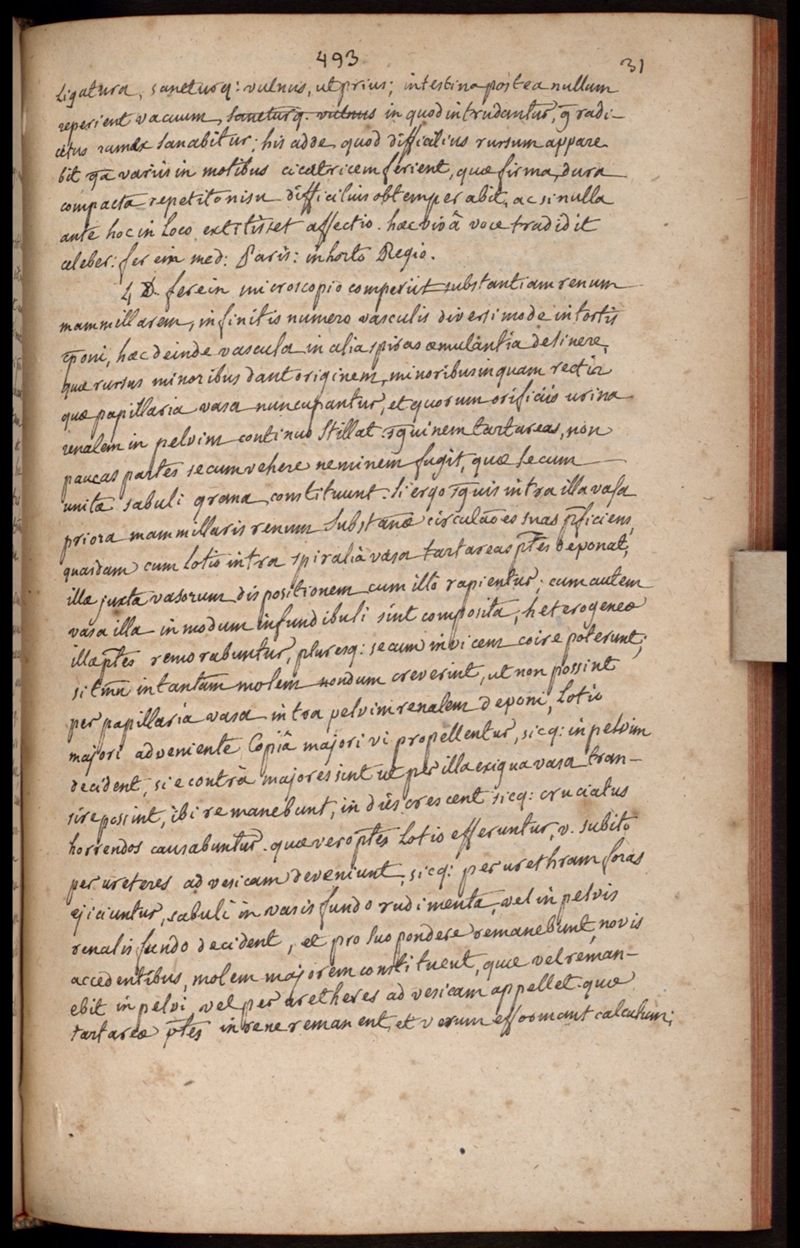 493
31
Ligatura, saneturq: vulnus, ut prius; intestina postea nullum
reperient vacuum, saneturq. vulnus in quod intrudantur, radi-
citus ramex sanabitur; his adde quod difficilius rursum appare
bit variis in motibus cicatricem ferient, quæ firma, dura
compacta repetito nisu difficilius obtemperabit, ac si nulla
ante hoc in loco extitisset affectio. hæc vivâ voce tradidit
celeber: ferein med: Paris: in horto Regio.
4 D. ferein microscopio comperiit substantiam renum
mammillarem, infinitis numero vasculis diversimode intortis
poni, hæc deinde vascula in alia spiras æmulantia desinere,
quæ rursus minoribus dant originem, minoribus inquam rectis
quæ papillaria vasa nuncupantur, et quorum orificiis urina
renalem in pelvim continuo stillat. sguinem tartareas, non
paucas partes secum vehere neminem fugit, quæ secum
unita sabuli grana constituunt: si ergo sguis intra illa vasa
priora mammillaris renum substanæ circulaões suas pficiens,
quasdam cum lotio intra spiralia vasa tartareas ptes deponat,
illæ juxta vasorum dispositionem cum illo rapientur; cum autem
vasa illa in modum infundibuli sint composita, heterogeneæ
illæ ptes remorabuntur, pluresq: secum invicem coire poterunt;
si tmn in tantam molem nondum creverint, ut non possint
per papillaria vasa intra pelvim renalem deponi, lotio
majori adveniente copiâ majori vi propellentur, sicq: in pelvim
decident, si e contrà majores sint ut per illa exigua vasa tran-
sire possint, ibi remanebunt, in dies crescent sicq: cruciatus
horrendos causabuntur. quæ vero ptes lotio efferuntur, v. subito
per ureteres ad vesicam deveniunt, sicq: per urethram foras
ejiciuntur, sabuli in vasis fundo rudimenta, vel in pelvis
renalis fundo decident, et pro suo pondere remanebunt, novis
accedentibus, molem majorem constituent, quæ vel reman-
ebit in pelvi, vel per uretheres ad vesicam appellet. quæ
tartareæ ptes in rene remanent, et verum efformant calculum;